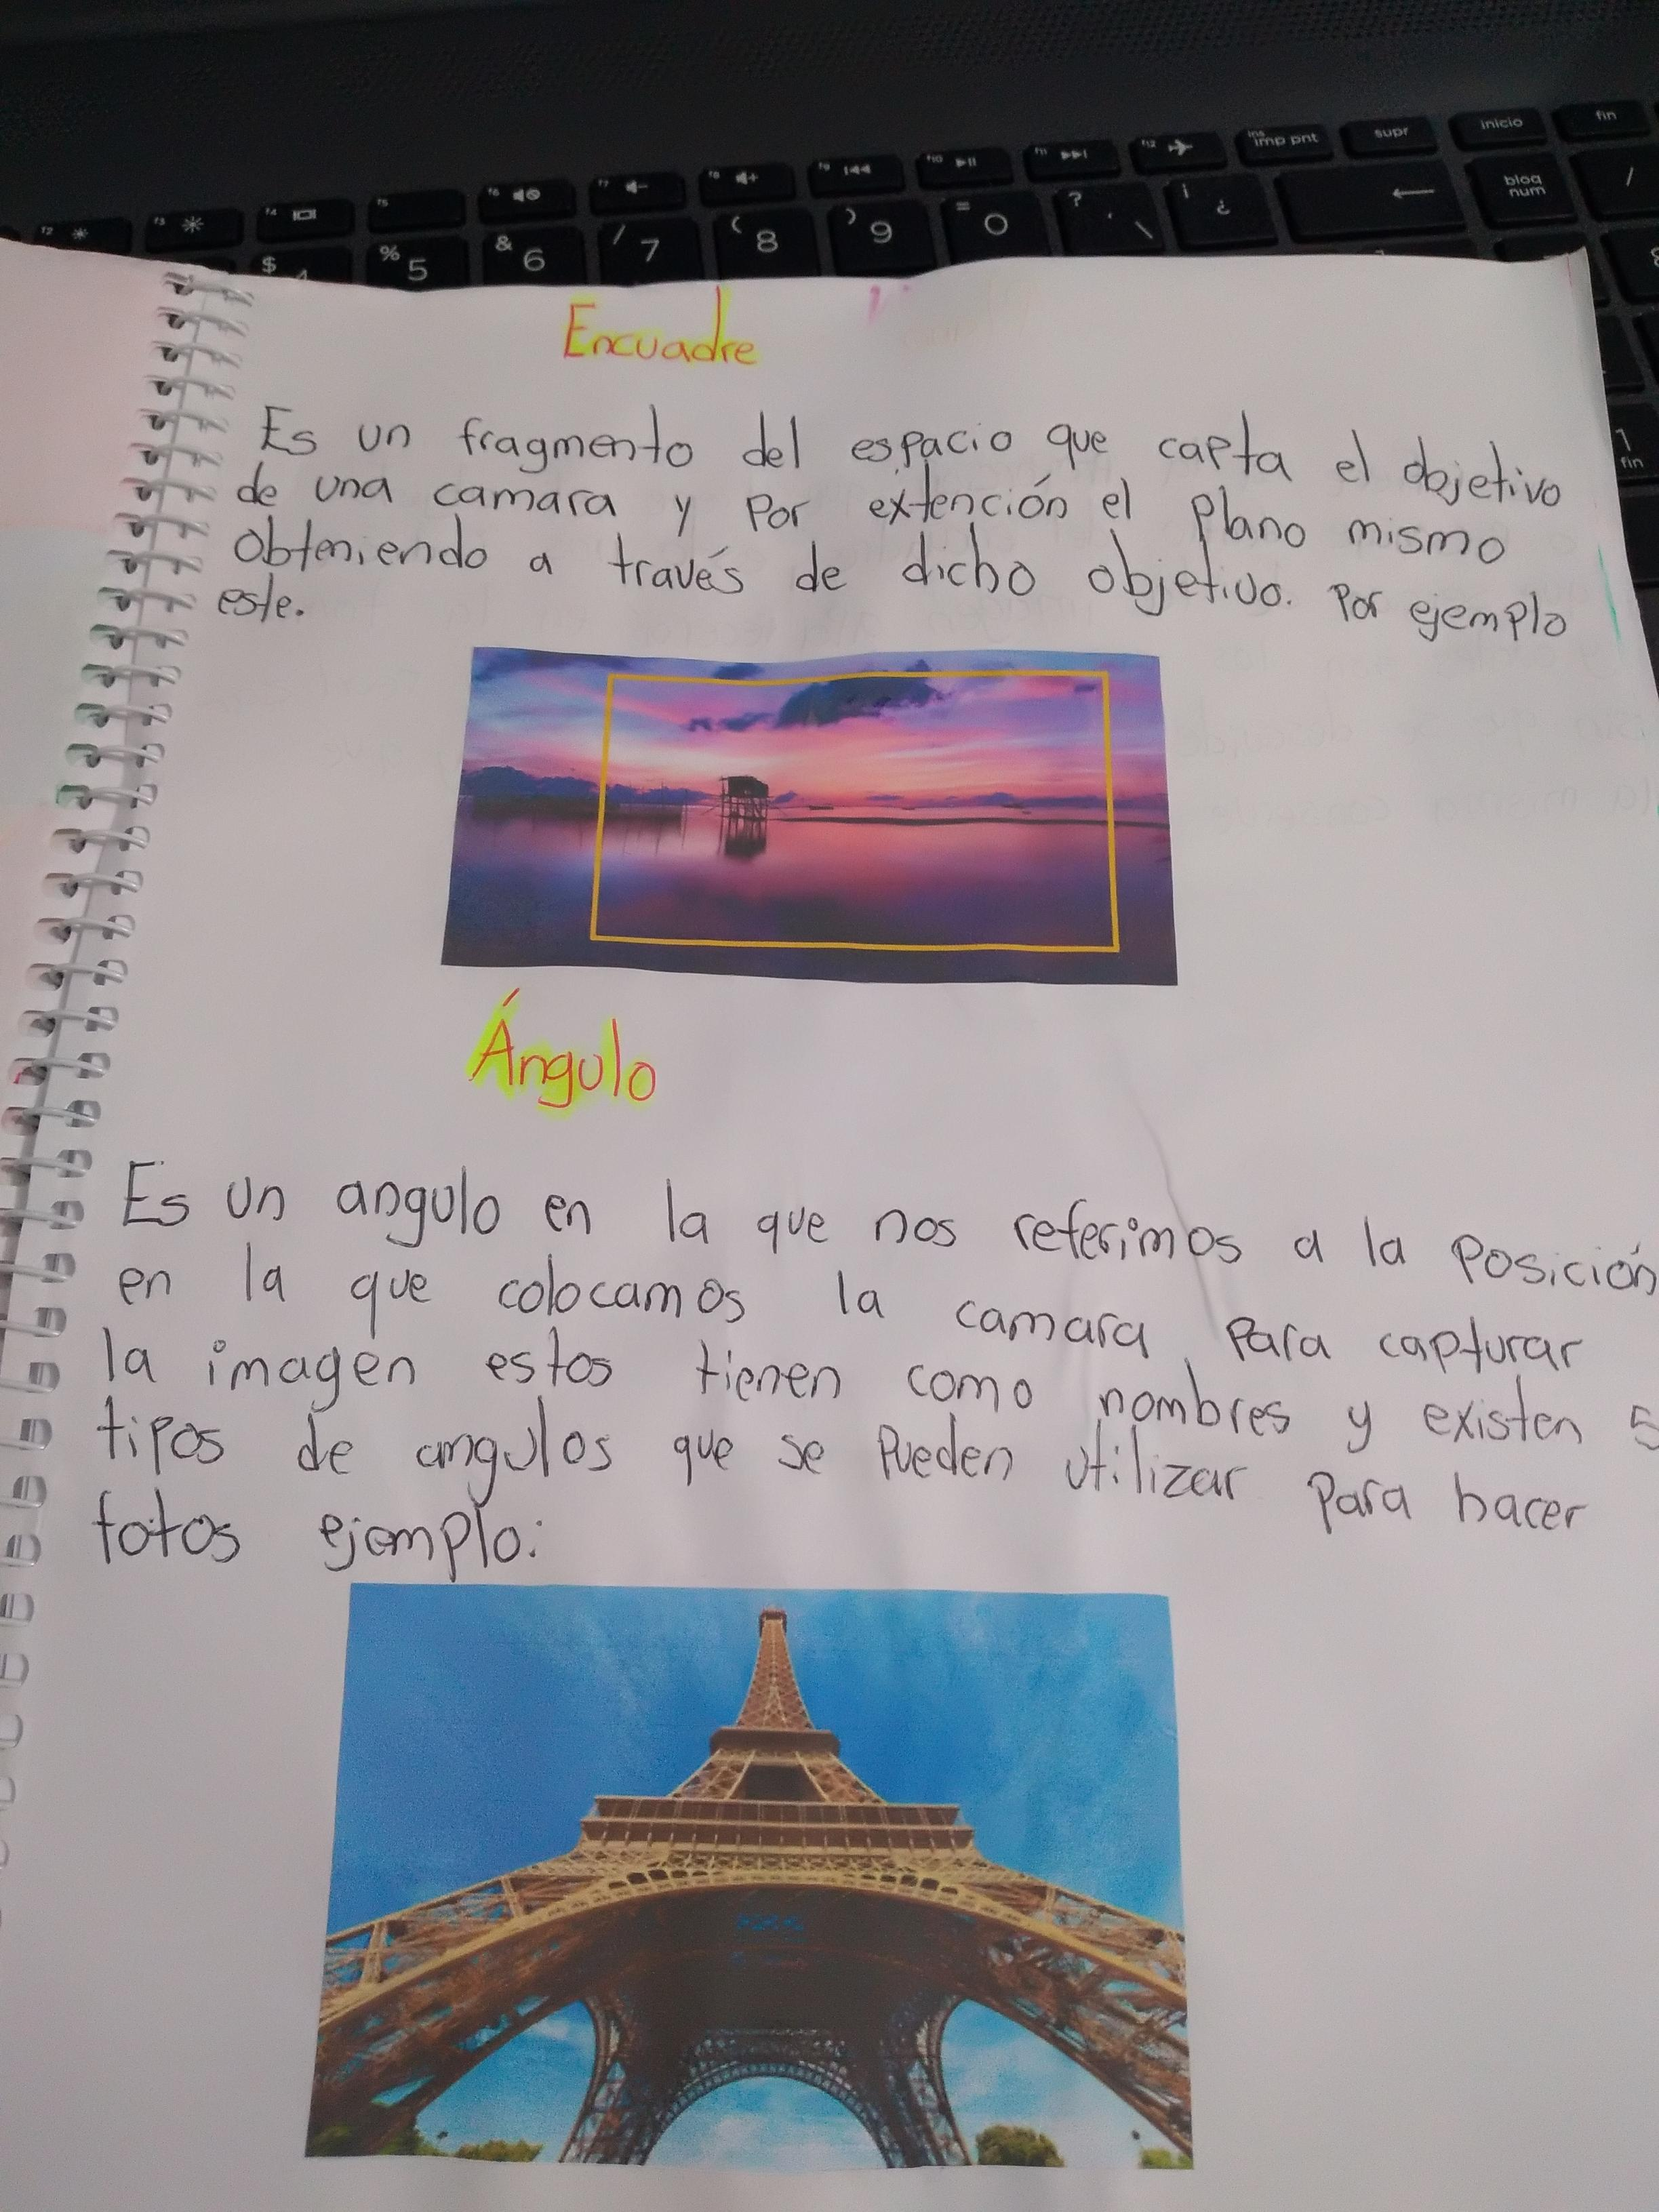 f2
f3
f4
f5
f6
f7
f8
f9
f10
f11
f12
ins
imp pnt
supr
inicio
fin
$ 4
% 5
& 6
/ 7
( 8
) 9
= 0
? ' \
¡ ¿
bloq
num
/
1
fin
Encuadre
Es un fragmento del espacio que capta el objetivo
de una camara y por extención el plano mismo
obteniendo a través de dicho objetivo. Por ejemplo
este.
Ángulo
Es un angulo en la que nos referimos a la posición
en la que colocamos la camara para capturar
la imagen estos tienen como nombres y existen 5
tipos de angulos que se pueden utilizar para hacer
fotos ejemplo: